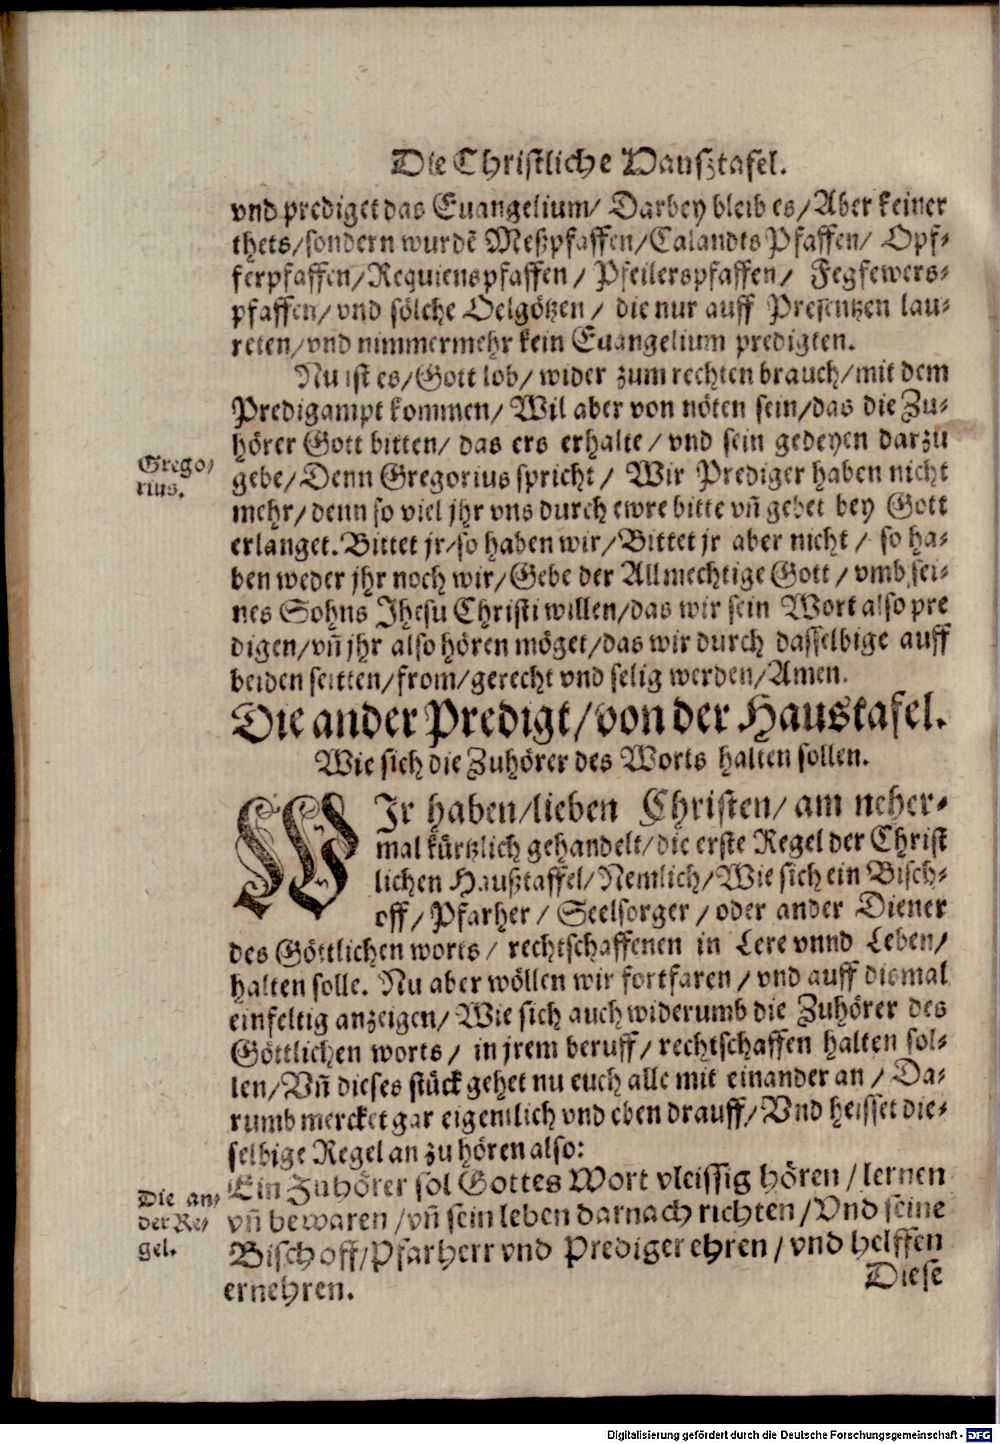 Die Christliche Hausztafel.
vnd prediget das Euangelium/ Darbey bleib es/ Aber keiner
thets/ sondern wurdē Meßpfaffen/ Calandts Pfaffen/ Opf-
ferpfaffen/ Requienspfaffen/ Pfeilerspfaffen/ Fegfewers-
pfaffen/ vnd sölche Oelgötzen/ die nur auff Presentzen lau-
reten/ vnd nimmermehr kein Euangelium predigten.
Nu ist es/ Gott lob/ wider zum rechten brauch/ mit dem
Predigampt kommen/ Wil aber von nöten sein/ das die Zu-
hörer Gott bitten/ das ers erhalte/ vnd sein gedeyen darzu
Grego/
rius.
gebe/ Denn Gregorius spricht/ Wir Prediger haben nicht
mehr/ denn so viel jhr vns durch ewre bitte vñ gebet bey Gott
erlanget. Bittet jr/ so haben wir/ Bittet jr aber nicht/ so ha-
ben weder jhr noch wir/ Gebe der Allmechtige Gott/ vmb sei-
nes Sohns Jhesu Christi willen/ das wir sein Wort also pre
digen/ vñ jhr also hören möget/ das wir durch dasselbige auff
beiden seitten/ from/ gerecht vnd selig werden/ Amen.
Die ander Predigt/ von der Haustafel.
Wie sich die Zuhörer des Worts halten sollen.
WJr haben/ lieben Christen/ am neher-
mal kürtzlich gehandelt/ die erste Regel der Christ
lichen Haußtaffel/ Nemlich/ Wie sich ein Bisch-
off/ Pfarher/ Seelsorger/ oder ander Diener
des Göttlichen worts/ rechtschaffenen in Lere vnnd Leben/
halten solle. Nu aber wöllen wir fortfaren/ vnd auff dismal
einfeltig anzeigen/ Wie sich auch widerumb die Zuhörer des
Göttlichen worts/ in jrem beruff/ rechtschaffen halten sol-
len/ Vñ dieses stück gehet nu euch alle mit einander an/ Da-
rumb mercket gar eigentlich vnd eben drauff/ Vnd heisset die-
selbige Regel an zu hören also:
Die an/
der Re/
gel.
Ein Zuhörer sol Gottes Wort vleissig hören/ lernen
vñ bewaren/ vñ sein leben darnach richten/ Vnd seine
Bischoff/ Pfarherr vnd Prediger ehren/ vnd helffen
ernehren.
Diese
Digitalisierung gefördert durch die Deutsche Forschungsgemeinschaft - DFG